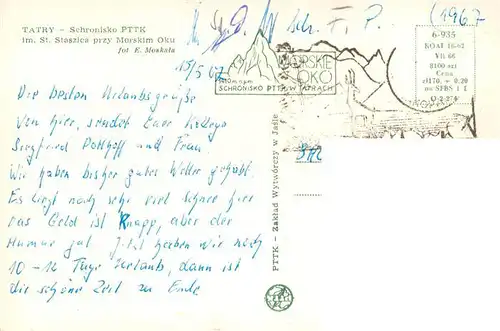 TATRY – Schronisko PTTK
im. St. Staszica przy Morskim Oku
fot E. Moskała
15/5 67
(1967
MORSKIE
OKO
SCHRONISKO PTTK W TATRACH
6-935
KOAI 16-62
VII 66
8100 szt
Cena
zł 1,70 + 0.20
na SFBS i I
O-2 374
Die besten Urlaubsgrüße
von hier, sendet Euer Kollege
Siegfried Potthoff und Frau
Wir haben bisher gutes Wetter gehabt.
Es liegt noch sehr viel Schnee hier
das Geld ist Knapp, aber der
Humor gut Jetzt haben wir noch
10-12 Tage Urlaub, dann ist
die schöne Zeit zu Ende
PTTK – Zakład Wytwórczy w Jaśle